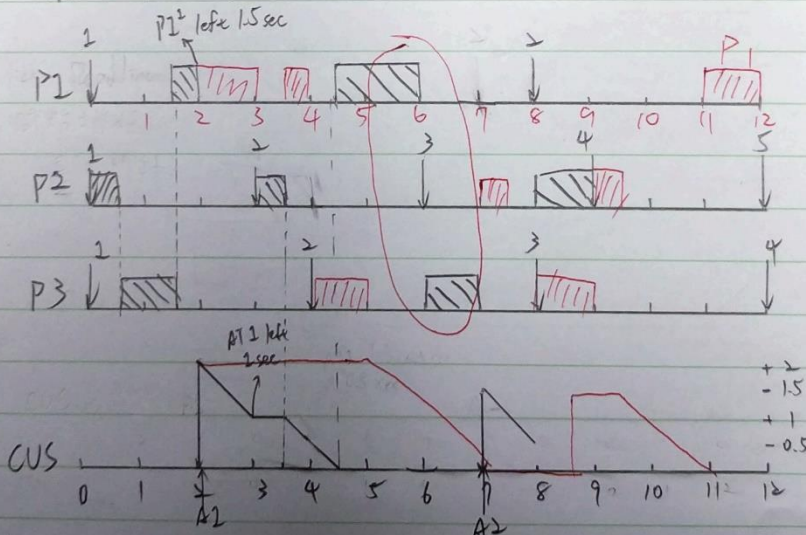 P1² left 1.5 sec
1 2 P1
P1
1 2 3 4 5 6 7 8 9 10 11 12
1 2 3 4 5
P2
1 2 3 4
P3
AT1 left
1 sec
+ 2
- 1.5
+ 1
- 0.5
CUS
0 1 2 3 4 5 6 7 8 9 10 11 12
A1 A2